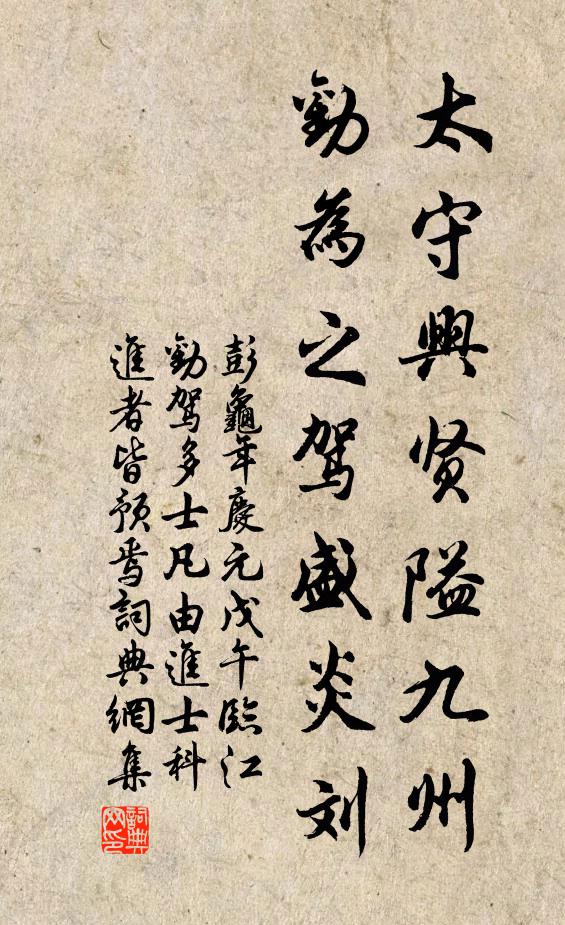 太守興贤隘九州
勸為之駕盛炎刘
彭龜年慶元戊午臨江
勸駕多士凡由進士科
進者皆預焉詞典網集
詞典网印